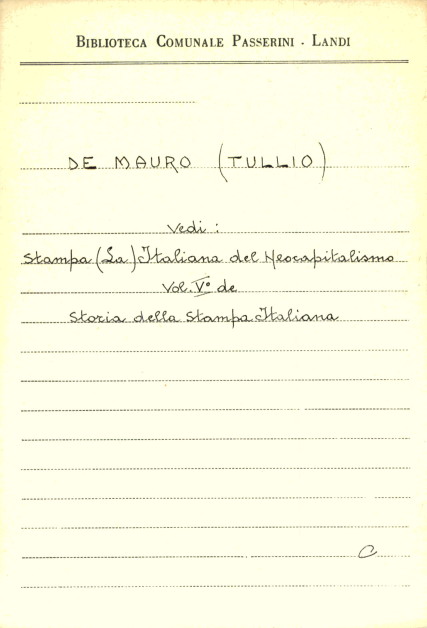 BIBLIOTECA COMUNALE PASSERINI - LANDI
DE MAURO (TULLIO)
Vedi :
Stampa (La) Italiana del Neocapitalismo
Vol. V° de
Storia della Stampa Italiana
C